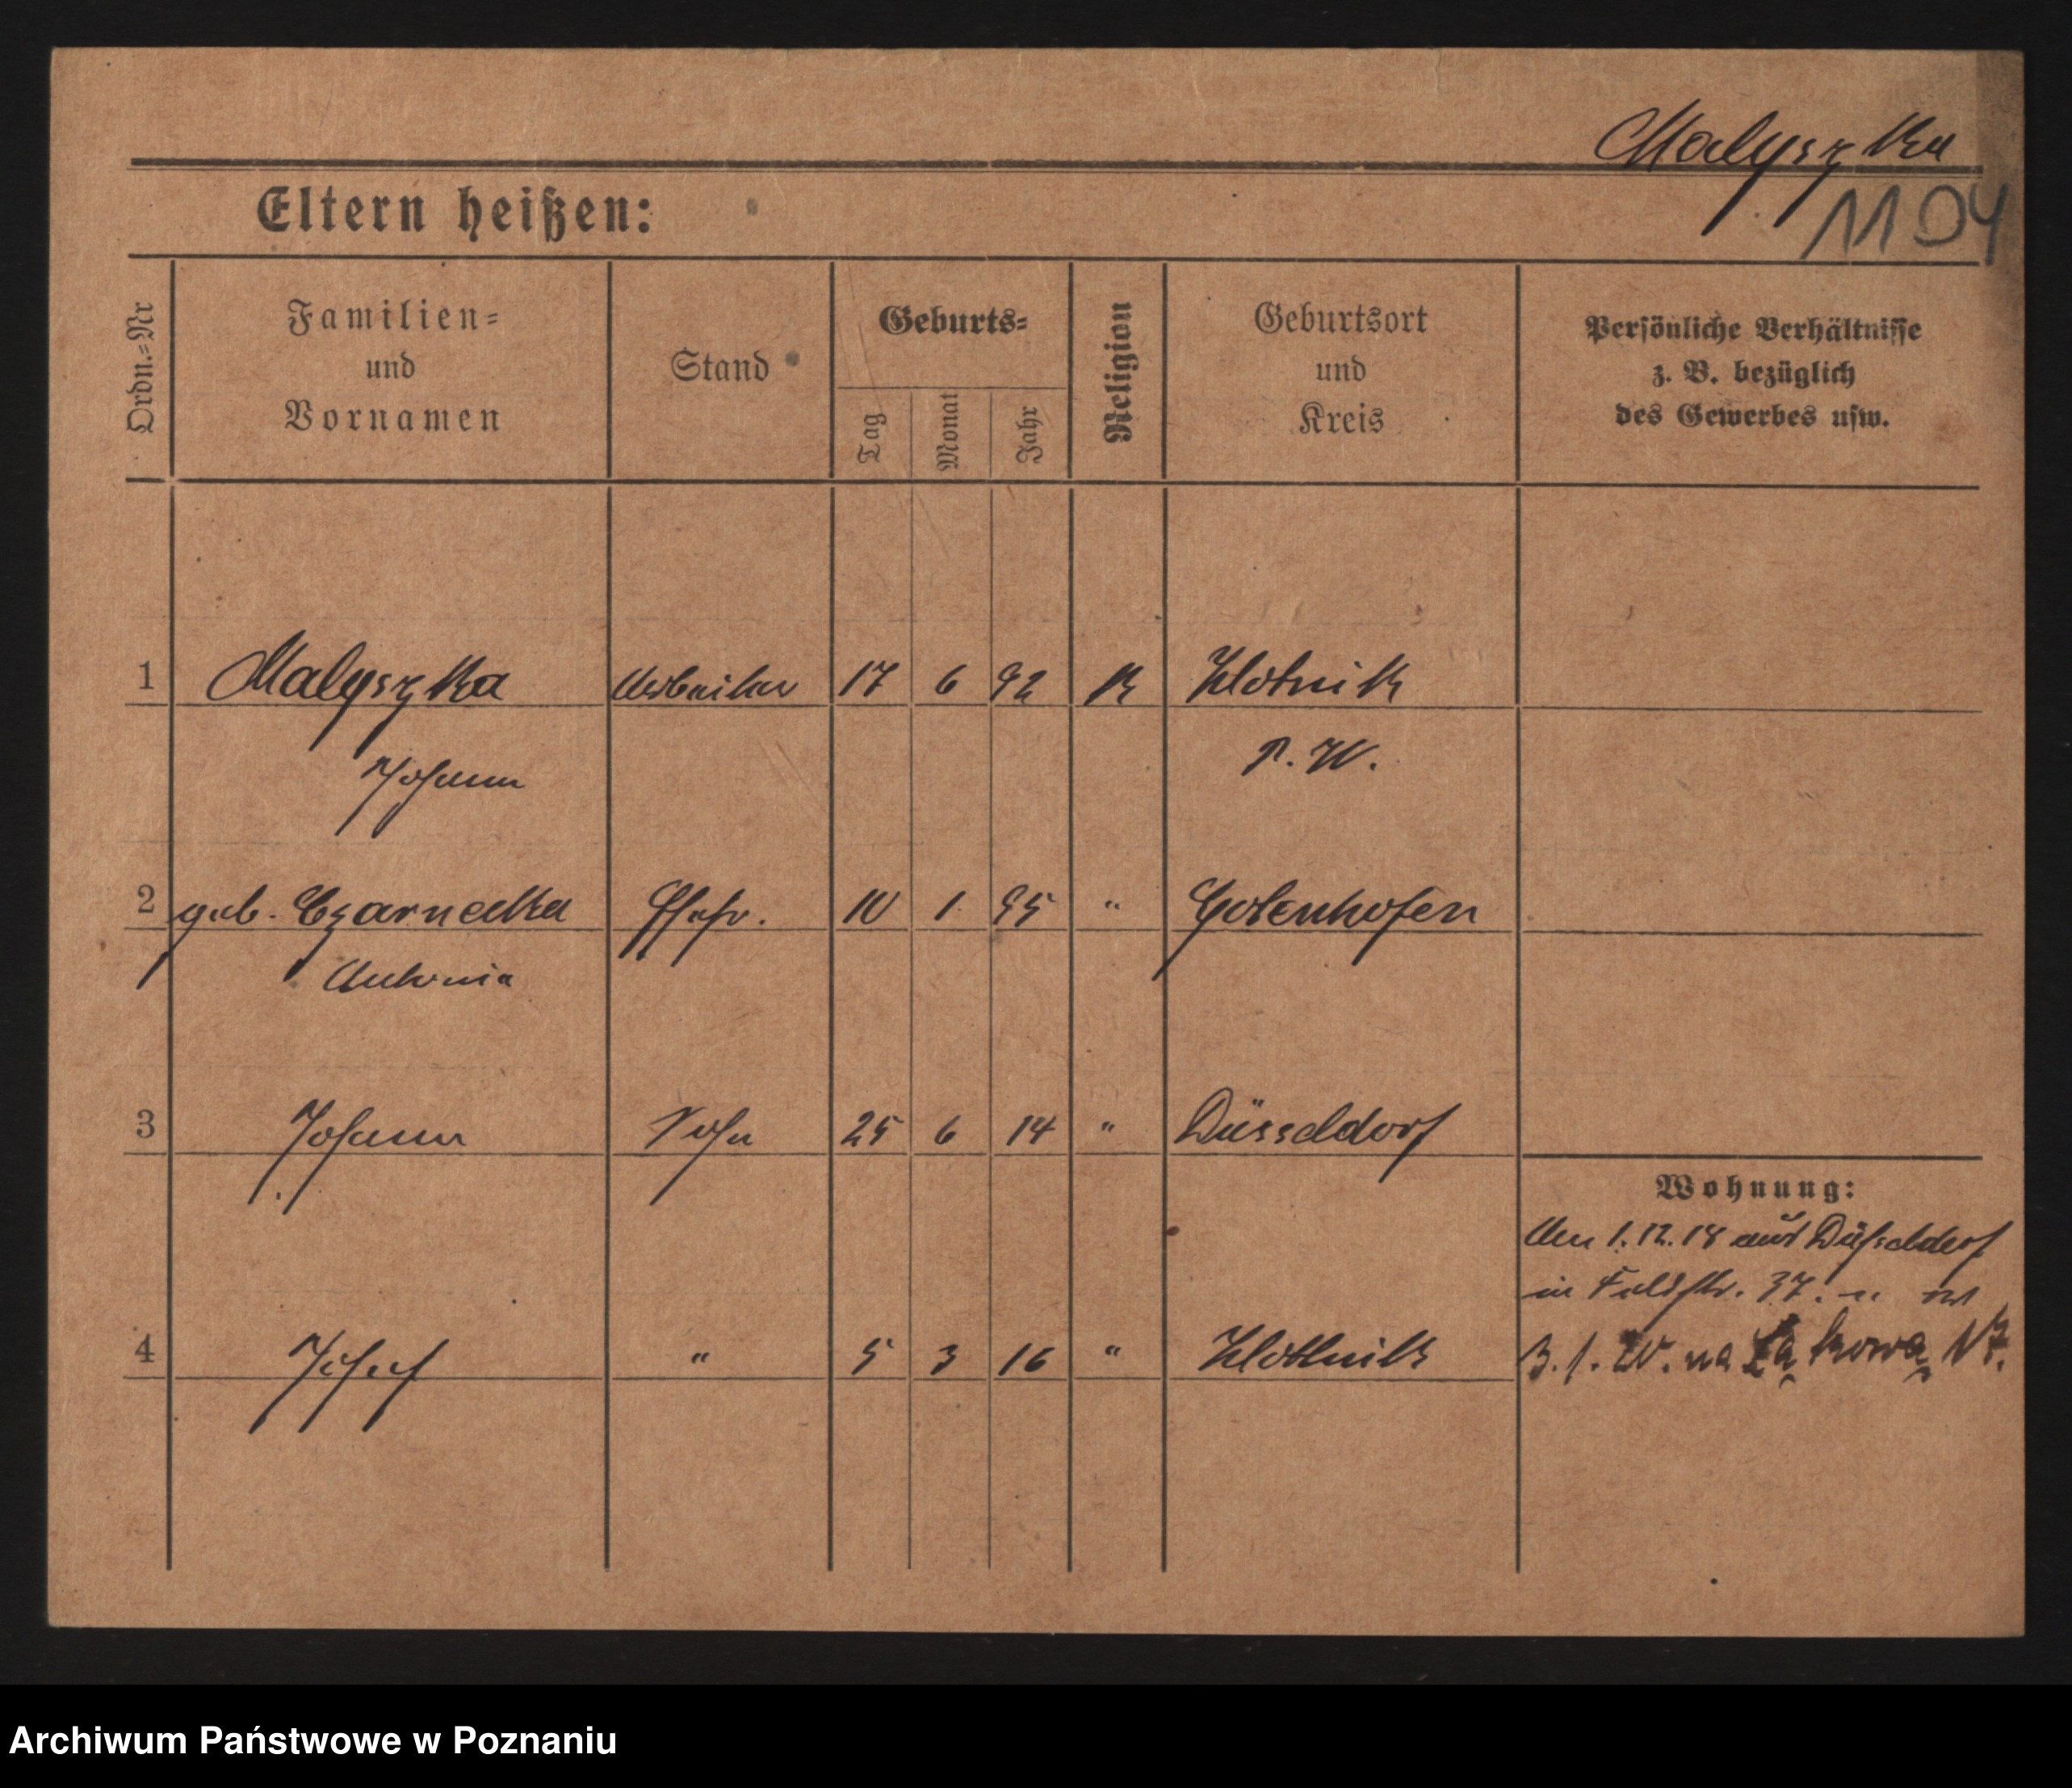 Malyszka
1104
Eltern heißen:
Ordn.=Nr
Familien=
und
Vornamen
Stand
Geburts=
Tag
Monat
Jahr
Religion
Geburtsort
und
Kreis
Persönliche Verhältnisse
z. B. bezüglich
des Gewerbes usw.
1 Malyszka Arbeiter 17 6 92 K Klotnik
Johann P. W.
2 geb. Czarnecka Ehefr. 10 1 95 " Gotenhofen
Antonia
3 Johann Sohn 25 6 14 " Düsseldorf
Wohnung:
Am 1.12.18 aus Düsseldorf
in Feldstr. 37.
4 Josef " 5 3 16 " Klottnik
3. f. W. na Łąkową 17.
Archiwum Państwowe w Poznaniu